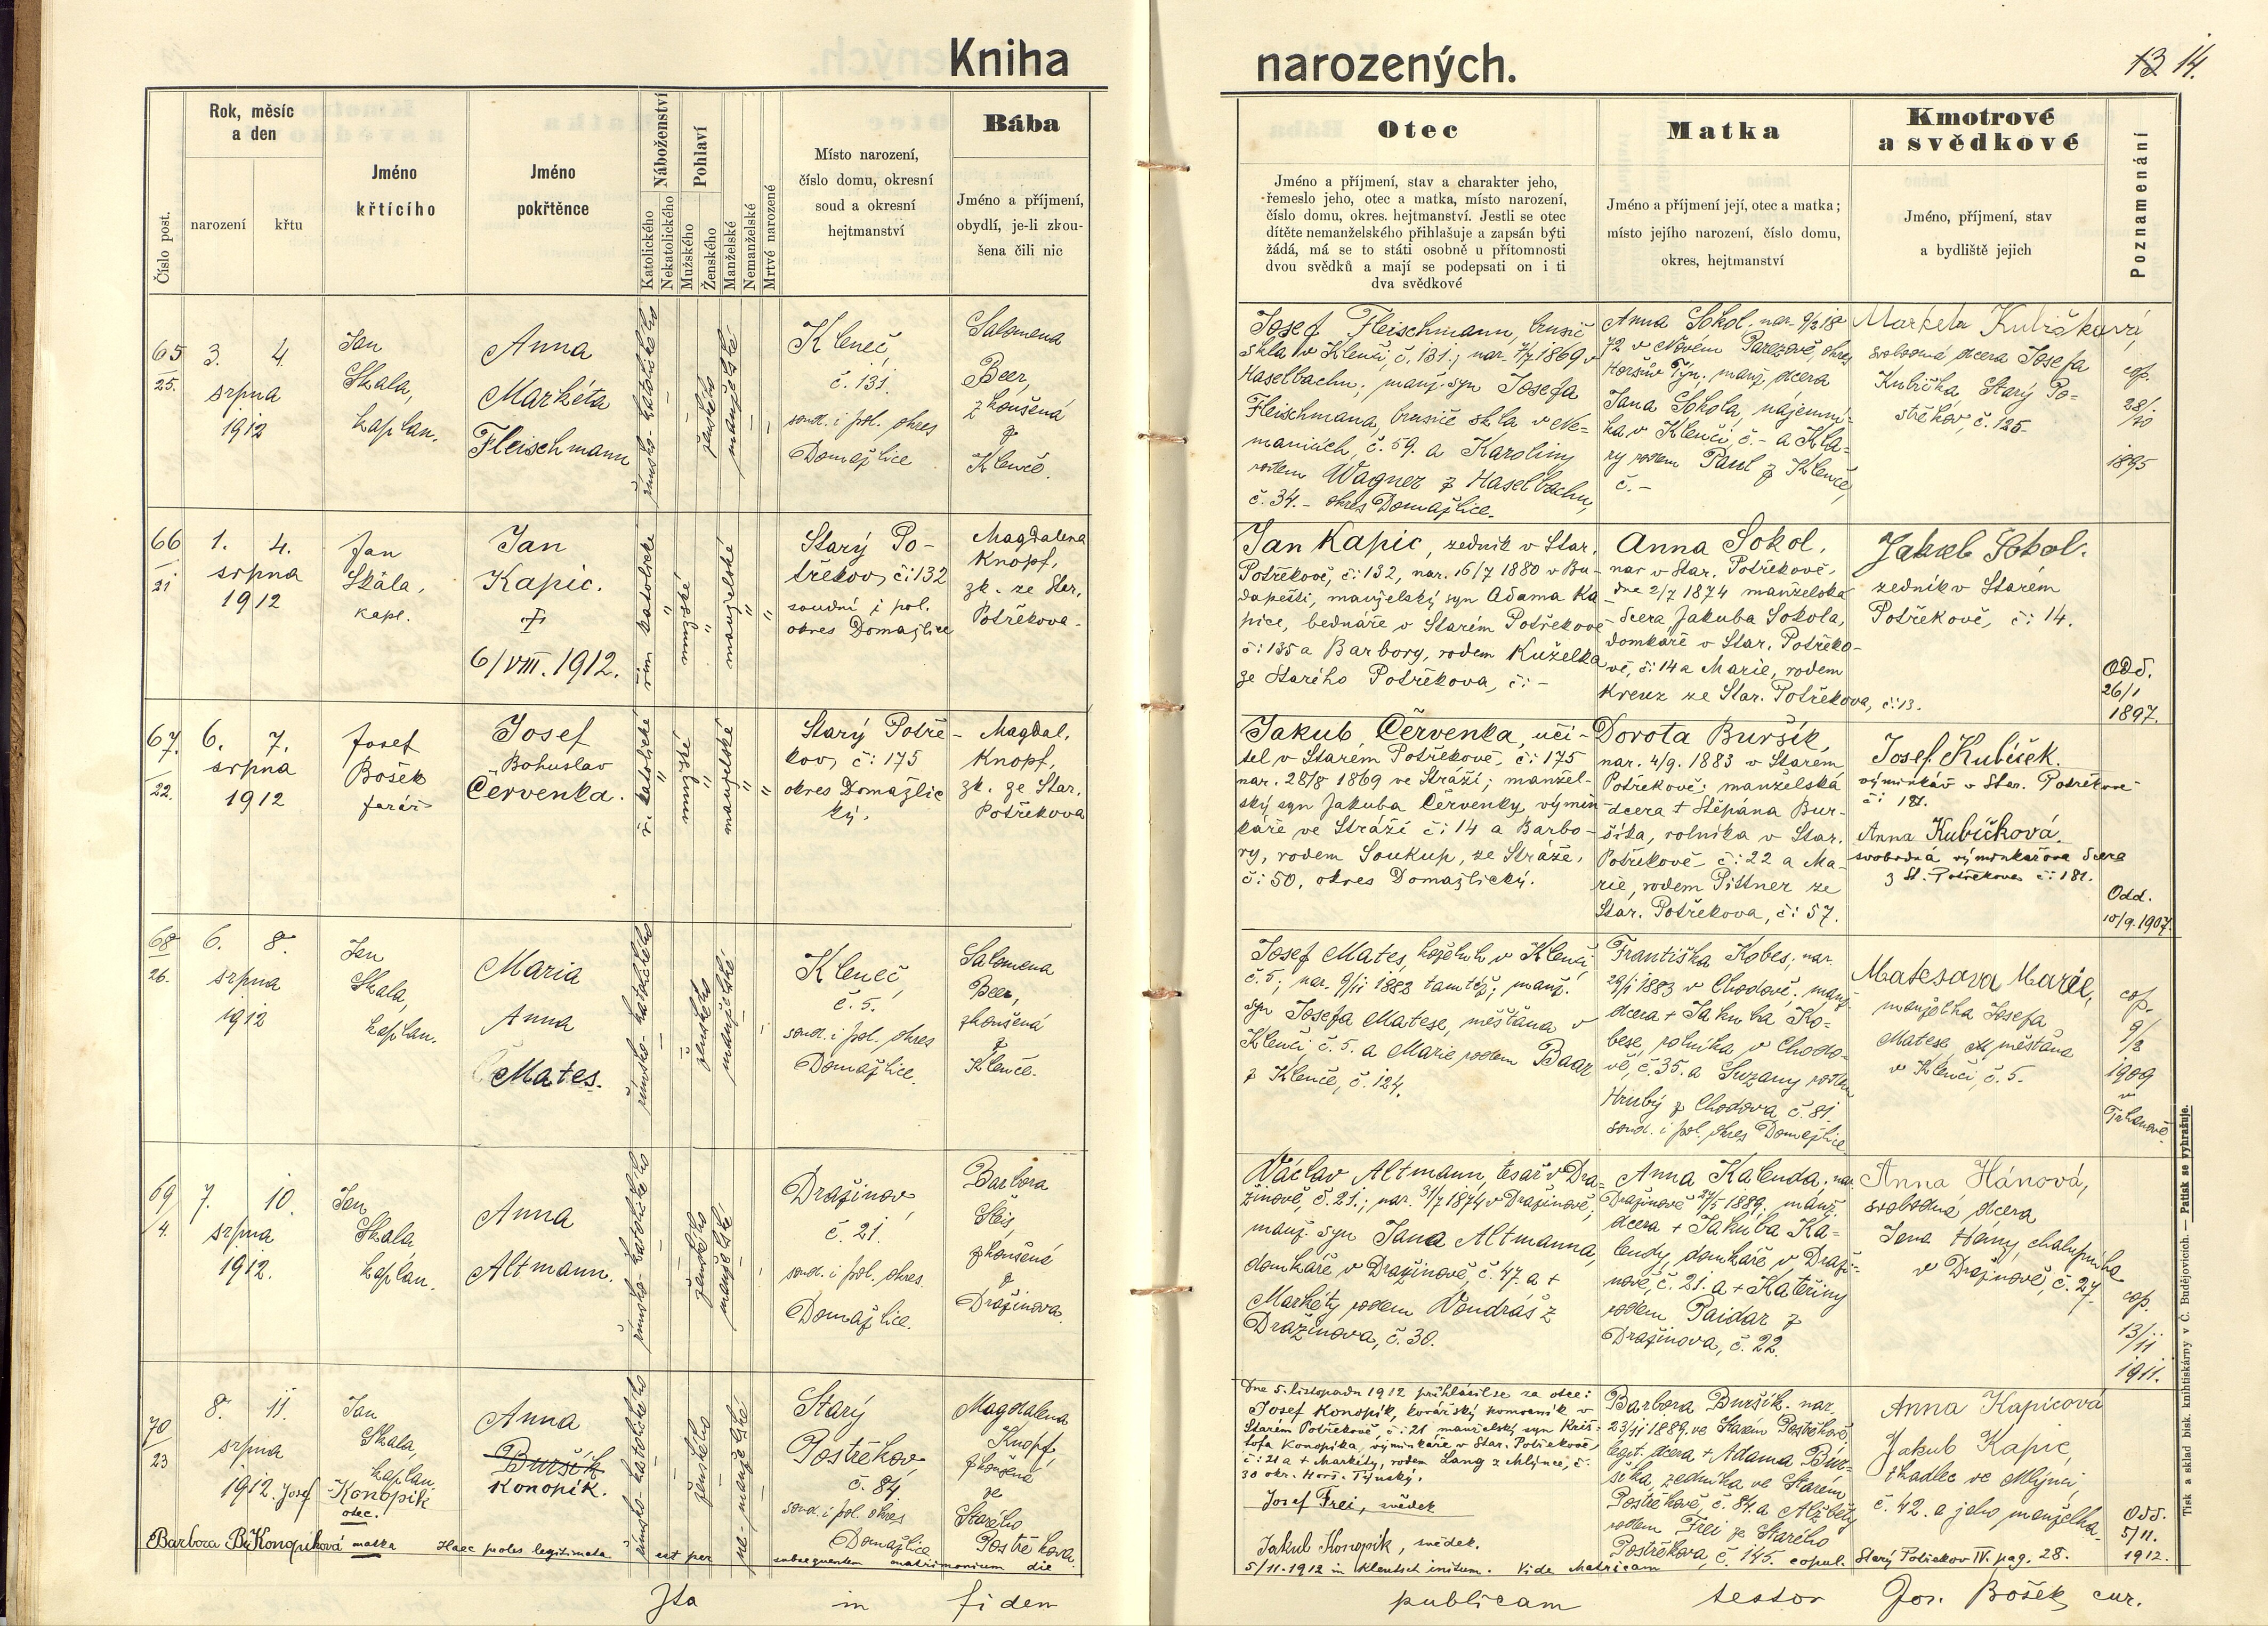 Kniha narozených.
13 14.
Číslo post.
Rok, měsíc
a den
narození
křtu
Jméno
křtícího
Jméno
pokřtěnce
Náboženství
Katolického
Nekatolického
Pohlaví
Mužského
Ženského
Manželské
Nemanželské
Mrtvé narozené
Místo narození,
číslo domu, okresní
soud a okresní
hejtmanství
Bába
Jméno a příjmení,
obydlí, je-li zkou-
šena čili nic
Otec
Jméno a příjmení, stav a charakter jeho,
řemeslo jeho, otec a matka, místo narození,
číslo domu, okres. hejtmanství. Jestli se otec
dítěte nemanželského přihlašuje a zapsán býti
žádá, má se to státi osobně u přítomnosti
dvou svědků a mají se podepsati on i ti
dva svědkové
Matka
Jméno a příjmení její, otec a matka;
místo jejího narození, číslo domu,
okres, hejtmanství
Kmotrové
a svědkové
Jméno, příjmení, stav
a bydliště jejich
Poznamenání
65
25.
3. 4.
srpna
1912
Jan
Skala,
kaplan.
Anna
Markéta
Fleischmann
římsko-katolického
ženského
manželské
Kleneč,
č. 131.
soud. i pol. okres
Domažlice
Salomena
Beer,
zkoušená
z
Klenče.
Josef Fleischmann, brusič
skla v Klenči, č. 131.; nar. 7/7 1869 v
Haselbachu; manž. syn Josefa
Fleischmana, brusiče skla v Ne-
maniích, č. 59. a Karoliny
rodem Wagner z Haselbachu,
č. 34.- okres Domažlice.
Anna Sokol. nar. 9/2 18
72 v Novém Parezově, okres
Horšův Týn; manž. dcera
Jana Sokola, nájemní-
ka v Klenči, č.- a Kla-
ry rodem Paul z Klenče,
č.-
Marketa Kubičková,
svobodná dcera Josefa
Kubička, Starý Po-
střekov, č. 125.
cop.
28/
/10
1895
66
21
1. 4.
srpna
1912
Jan
Skála,
kapl.
Jan
Kapic.
†
6/VIII. 1912.
řím katolické
mužské
manželské
Starý Po-
třekov, č: 132
soudní i pol.
okres Domažlice
Magdalena
Knopf,
zk. ze Star.
Potřekova-
Jan Kapic, zedník v Star.
Potřekově, č: 132, nar. 16/7 1880 v Bu-
dapešti, manželský syn Adama Ka
pice, bednáře v Starém Potřekově
č: 135 a Barbory, rodem Kuželka
ze Starého Potřekova, č: -
Anna Sokol,
nar v Star. Potřekově,
dne 2/7 1874 manželská
dcera Jakuba Sokola,
domkáře v Star. Potřeko-
vě, č: 14 a Marie, rodem
Kreuz ze Star. Potřekova, č: 13.
Jakub Sokol.
zedník v Starém
Potřekově, č: 14.
Odd.
26/1
1897.
67.
22.
6. 7.
srpna
1912
Josef
Bošek
farář
Josef
Bohuslav
Červenka.
ř. katolické
mužské
manželské
Starý Potře-
kov, č: 175
okres Domažlic
ký.
Magdal.
Knopf,
zk. ze Star.
Potřekova
Jakub Červenka, uči-
tel v Starém Potřekově, č: 175
nar. 28/8 1869 ve Stráži; manžel-
ský syn Jakuba Červenky, výmin-
káře ve Stráži č: 14 a Barbo-
ry, rodem Soukup, ze Stráže,
č: 50, okres Domažlický.
Dorota Buršík,
nar. 4/9. 1883 v Starém
Potřekově; manželská
dcera † Štěpána Bur-
šíka, rolníka v Star.
Potřekově č: 22 a Ma-
rie, rodem Pittner ze
Star. Potřekova, č: 57.
Josef Kubíček.
výminkář v Star. Potřekově
č: 181.
Anna Kubíčková.
svobodná výminkářova dcera
z St. Potřekova č: 181.
Odd.
10/9. 1907.
68
26.
6. 8.
srpna
1912
Jan
Skala,
kaplan.
Maria
Anna
Mates.
římsko-katolického
ženského
manželské
Kleneč,
č. 5.
soud. i pol. okres
Domažlice.
Salomena
Beer,
zkoušená
z
Klenče.
Josef Mates, koželuh v Klenči,
č. 5; nar. 9/11 1882 tamtéž; manž.
syn Josefa Matese, měšťana v
Klenči, č. 5. a Marie rodem Baar
z Klenče, č. 124.
Františka Kobes; nar.
29/1 1883 v Chodově. manž.
dcera + Jakuba Ko-
bese, rolníka v Chodo-
vě, č. 35. a Suzany rodem
Hrubý z Chodova č. 81
soud. i pol. okres Domažlice
Matesova Marie,
manželka Josefa
Matese, měšťana
v Klenči, č. 5.
cop.
9/2
1909
v
Trhanově.
69
4.
7. 10.
srpna
1912.
Jan
Skala
kaplan.
Anna
Altmann.
římsko-katolického
ženského
manželské
Dražinov,
č. 21.
soud. i pol. okres.
Domažlice.
Barbora
zkoušená
z
Dražinova.
Václav Altmann, tesař v Dra-
žinově, č. 21.; nar. 31/7 1874 v Dražinově;
manž. syn Jana Altmanna,
domkáře v Dražinově, č. 47. a +
Markéty rodem Vondráš z
Dražinova, č. 30.
Anna Kalenda. nar.
Dražinově 27/5 1889; manž.
dcera + Jakuba Ka-
lendy, domkáře v Draži-
nově, č. 21. a + Kateřiny
rodem Paidar z
Dražinova, č. 22.
Anna Hánová,
svobodná dcera
Jana Hány, chalupníka
v Dražinově, č. 27.
cop.
13/11
1911.
70
23
8. 11.
srpna
1912.
Jan
Skala,
kaplan.
Josef Konopík
otec.
Anna
Buršík
Konopík.
římsko-katolického
ženského
ne-manželské
Starý
Postřekov
č. 84
soud. i pol. okres
Domažlice
Magdalena
Knopf,
zkoušená
ze
Starého
Postřekova.
Barbora Konopíková matka Haec proles legitimata est per subsequentem matrimonium die
Dne 5. listopadu 1912 přihlásil se za otce:
Josef Konopík, kovářský pomocník v
Starém Potřekově, č: 21 manželský syn Kriš-
tofa Konopíka, výminkáře v Star. Potřekově,
č: 21 a + Markéty, rodem Lang z Mlýnce, č:
30 okr. Horš. Týnský.
Josef Frei, svědek
Jakub Konopík, svědek.
5/11. 1912 in Klentsch initum. Vide Matricam copul. Starý Potřekov IV. pag. 28.
Barbora Buršík. nar.
23/11 1889. ve Starém Postřekově,
legit. dcera + Adama Bur-
šíka, zedníka ve Starém
Postřekově, č. 84. a Alžběty
rodem Frei ze Starého
Postřekova, č. 145.
Anna Kapicová
Jakub Kapic,
tkadlec ve Mlýnci,
č. 42. a jeho manželka.
Odd.
5/11.
1912.
Ita in fidem publicam testor Jos. Bošek, cur.
Tisk a sklad bisk. knihtiskárny v Č. Budějovicích. — Patisk se vyhražuje.